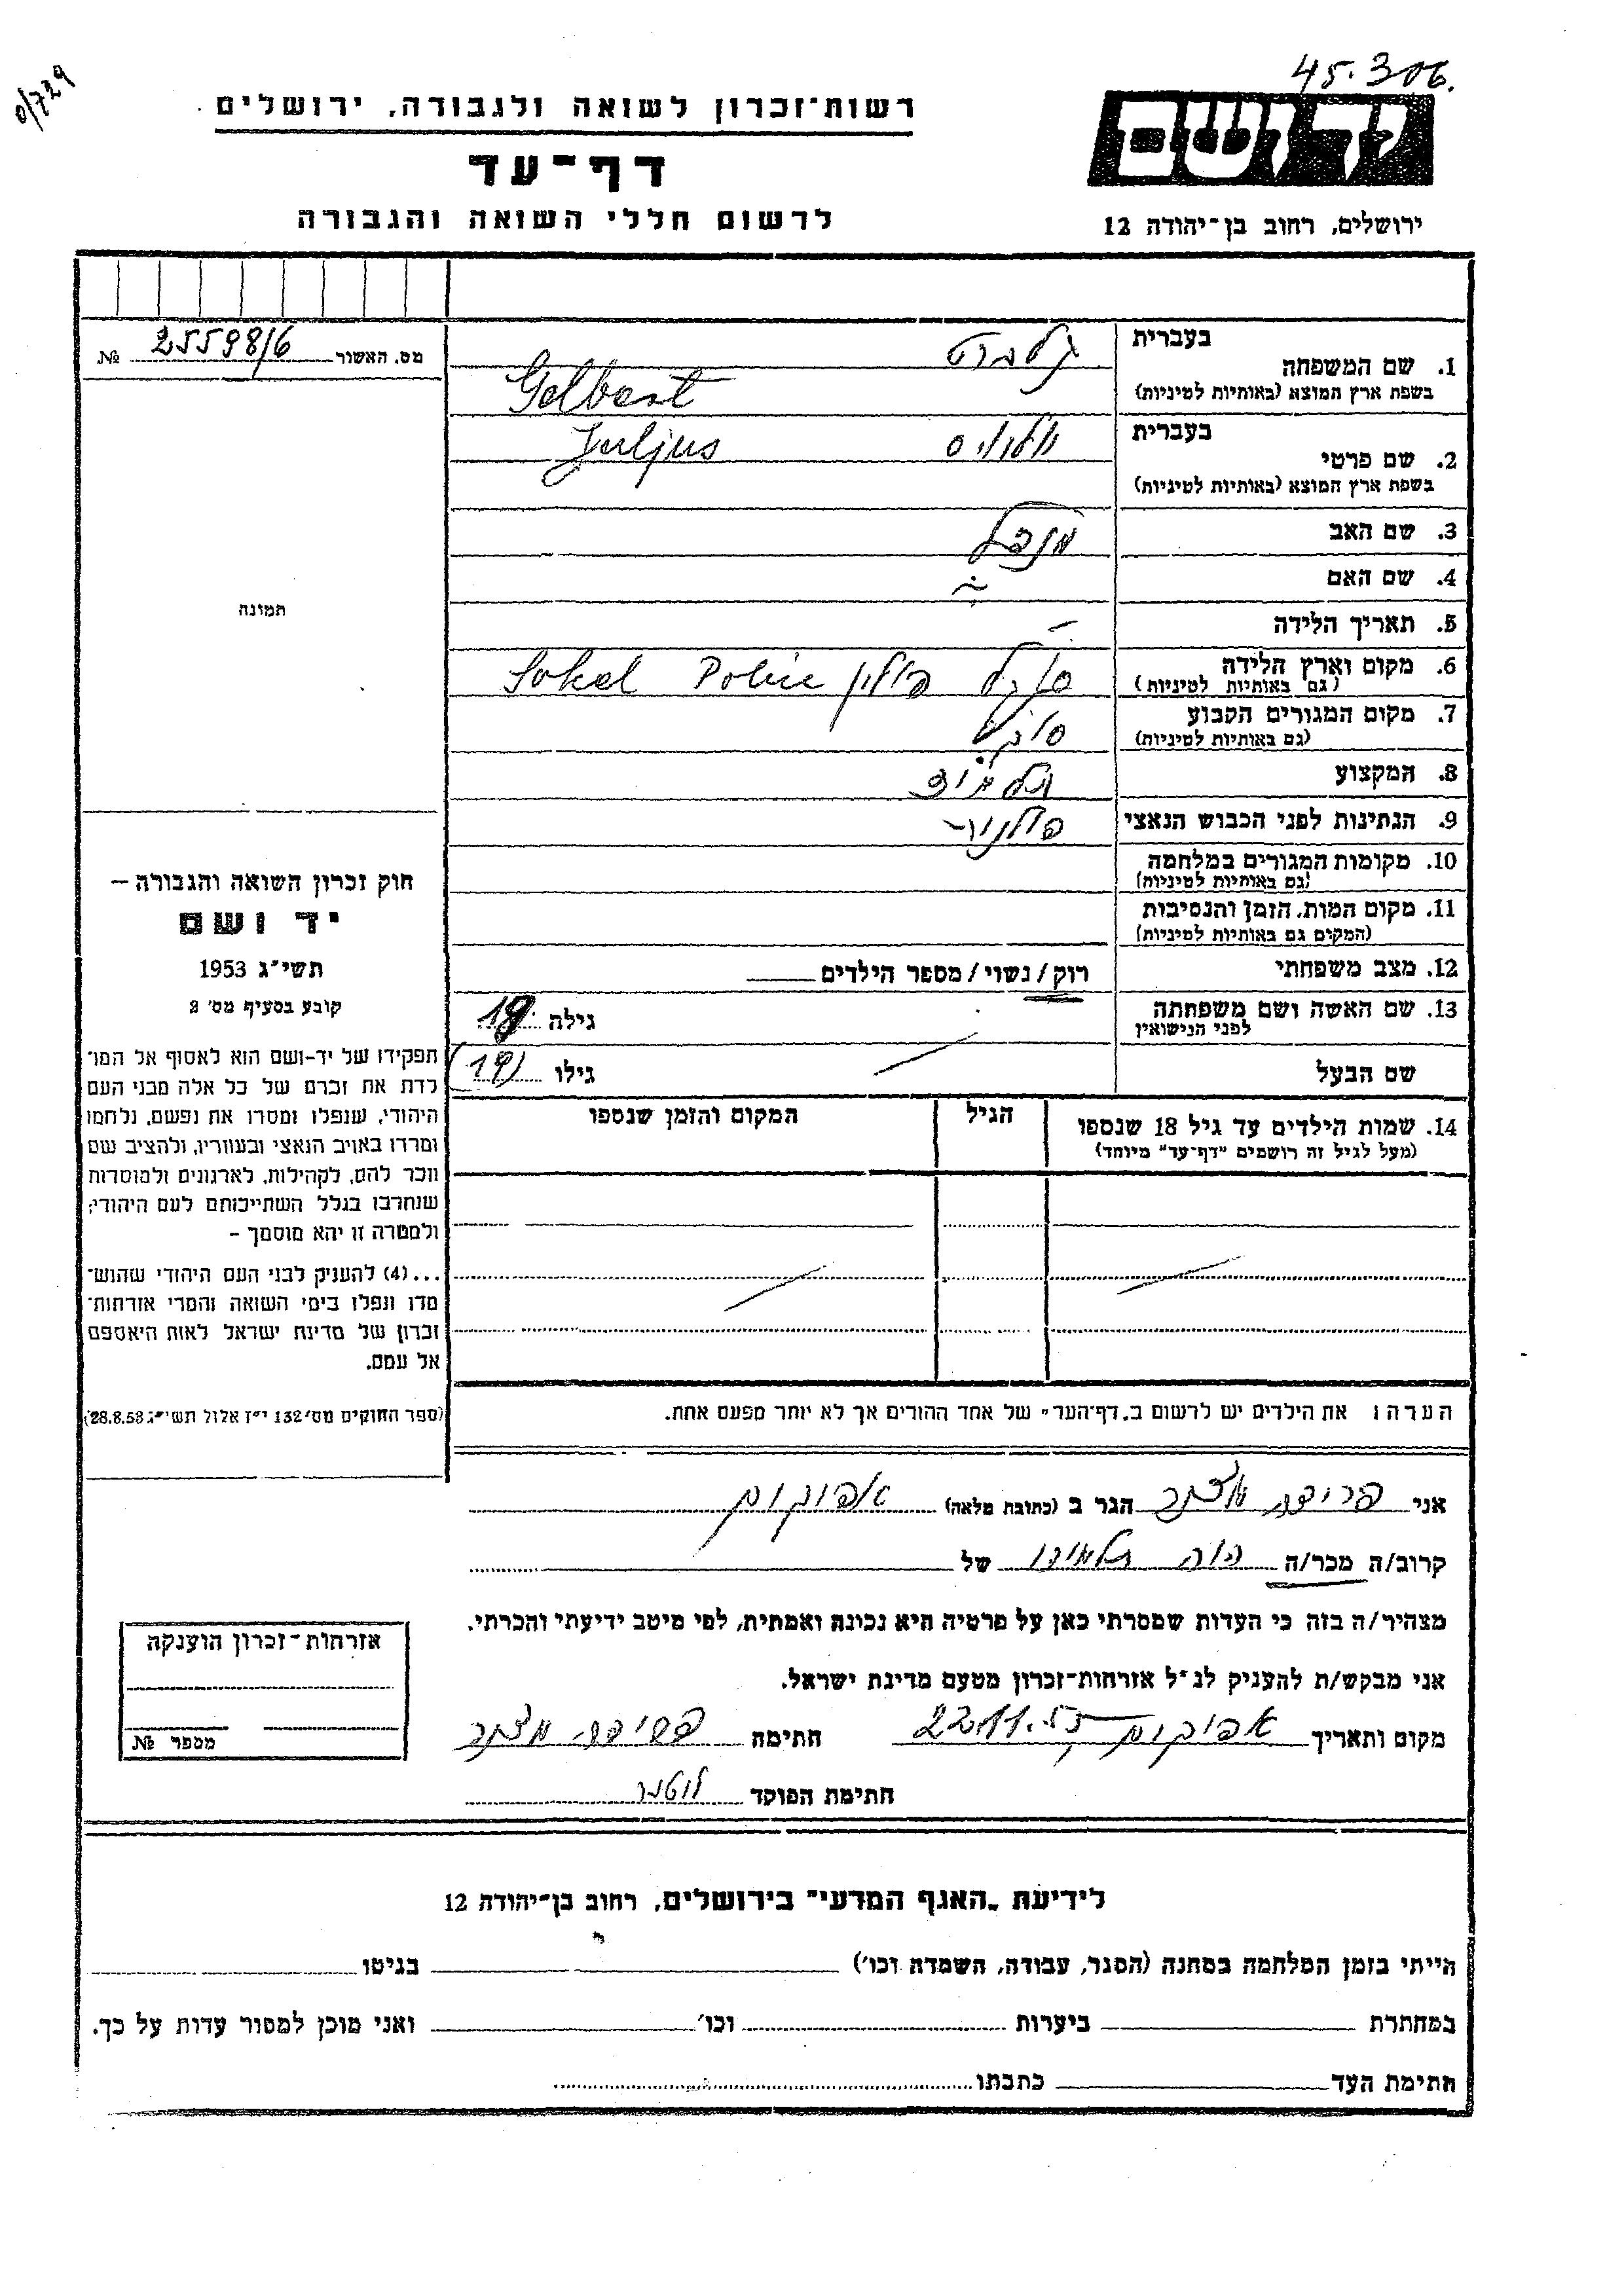 0/729
45.306.
רשות־זכרון לשואה ולגבורה, ירושלים
דף־עד
לרשום חללי השואה והגבורה
יד ושם
ירושלים, רחוב בן־יהודה 12
מס. האשור 25598/6 №
בעברית
1. שם המשפחה גלברט
בשפת ארץ המוצא (באותיות לטיניות) Gelbart
בעברית
2. שם פרטי יוליוס
Juljus
בשפת ארץ המוצא (באותיות לטיניות)
3. שם האב מנדל
4. שם האם
5. תאריך הלידה -
6. מקום וארץ הלידה סוקל פולין Sokal Polska
(גם באותיות לטיניות)
7. מקום המגורים הקבוע סוקל
(גם באותיות לטיניות)
8. המקצוע תלמיד
9. הנתינות לפני הכבוש הנאצי פולנית
10. מקומות המגורים במלחמה
(גם באותיות לטיניות)
11. מקום המות, הזמן והנסיבות
(המקום גם באותיות לטיניות)
12. מצב משפחתי רוק/נשוי/מספר הילדים
13. שם האשה ושם משפחתה
לפני הנישואין
גילה
שם הבעל
גילו
14. שמות הילדים עד גיל 18 שנספו
(מעל לגיל זה רושמים "דף־עד" מיוחד)
הגיל
המקום והזמן שנספו
תמונה
חוק זכרון השואה והגבורה –
יד ושם
תשי"ג 1953
קובע בסעיף מס' 2
תפקידו של יד-ושם הוא לאסוף אל המו־
לדת את זכרם של כל אלה מבני העם
היהודי, שנפלו ומסרו את נפשם, נלחמו
ומרדו באויב הנאצי ובעוזריו, ולהציב שם
וזכר להם, לקהילות, לארגונים ולמוסדות
שנחרבו בגלל השתייכותם לעם היהודי;
ולמטרה זו יהא מוסמך –
...(4) להעניק לבני העם היהודי שהוש־
מדו ונפלו בימי השואה והמרי אזרחות־
זכרון של מדינת ישראל לאות היאספם
אל עמם.
(ספר החוקים מס' 132 י"ז אלול תשי"ג 28.8.53)
הערה: את הילדים יש לרשום ב„דף־העד" של אחד ההורים אך לא יותר מפעם אחת.
אני הגר ב (כתובת מלאה) אפיקים
קרוב/ה מכר/ה היה תלמידי של
מצהיר/ה בזה כי העדות שמסרתי כאן על פרטיה היא נכונה ואמתית, לפי מיטב ידיעתי והכרתי.
אני מבקש/ת להעניק לנ"ל אזרחות־זכרון מטעם מדינת ישראל.
מקום ותאריך אפיקים 22.11.55 חתימה
חתימת הפוקד
אזרחות־זכרון הוענקה
מספר №
לידיעת „האגף המדעי" בירושלים, רחוב בן־יהודה 12
הייתי בזמן המלחמה במחנה (הסגר, עבודה, השמדה וכו') בגיטו
במחתרת ביערות וכו' ואני מוכן למסור עדות על כך.
חתימת העד כתבתו